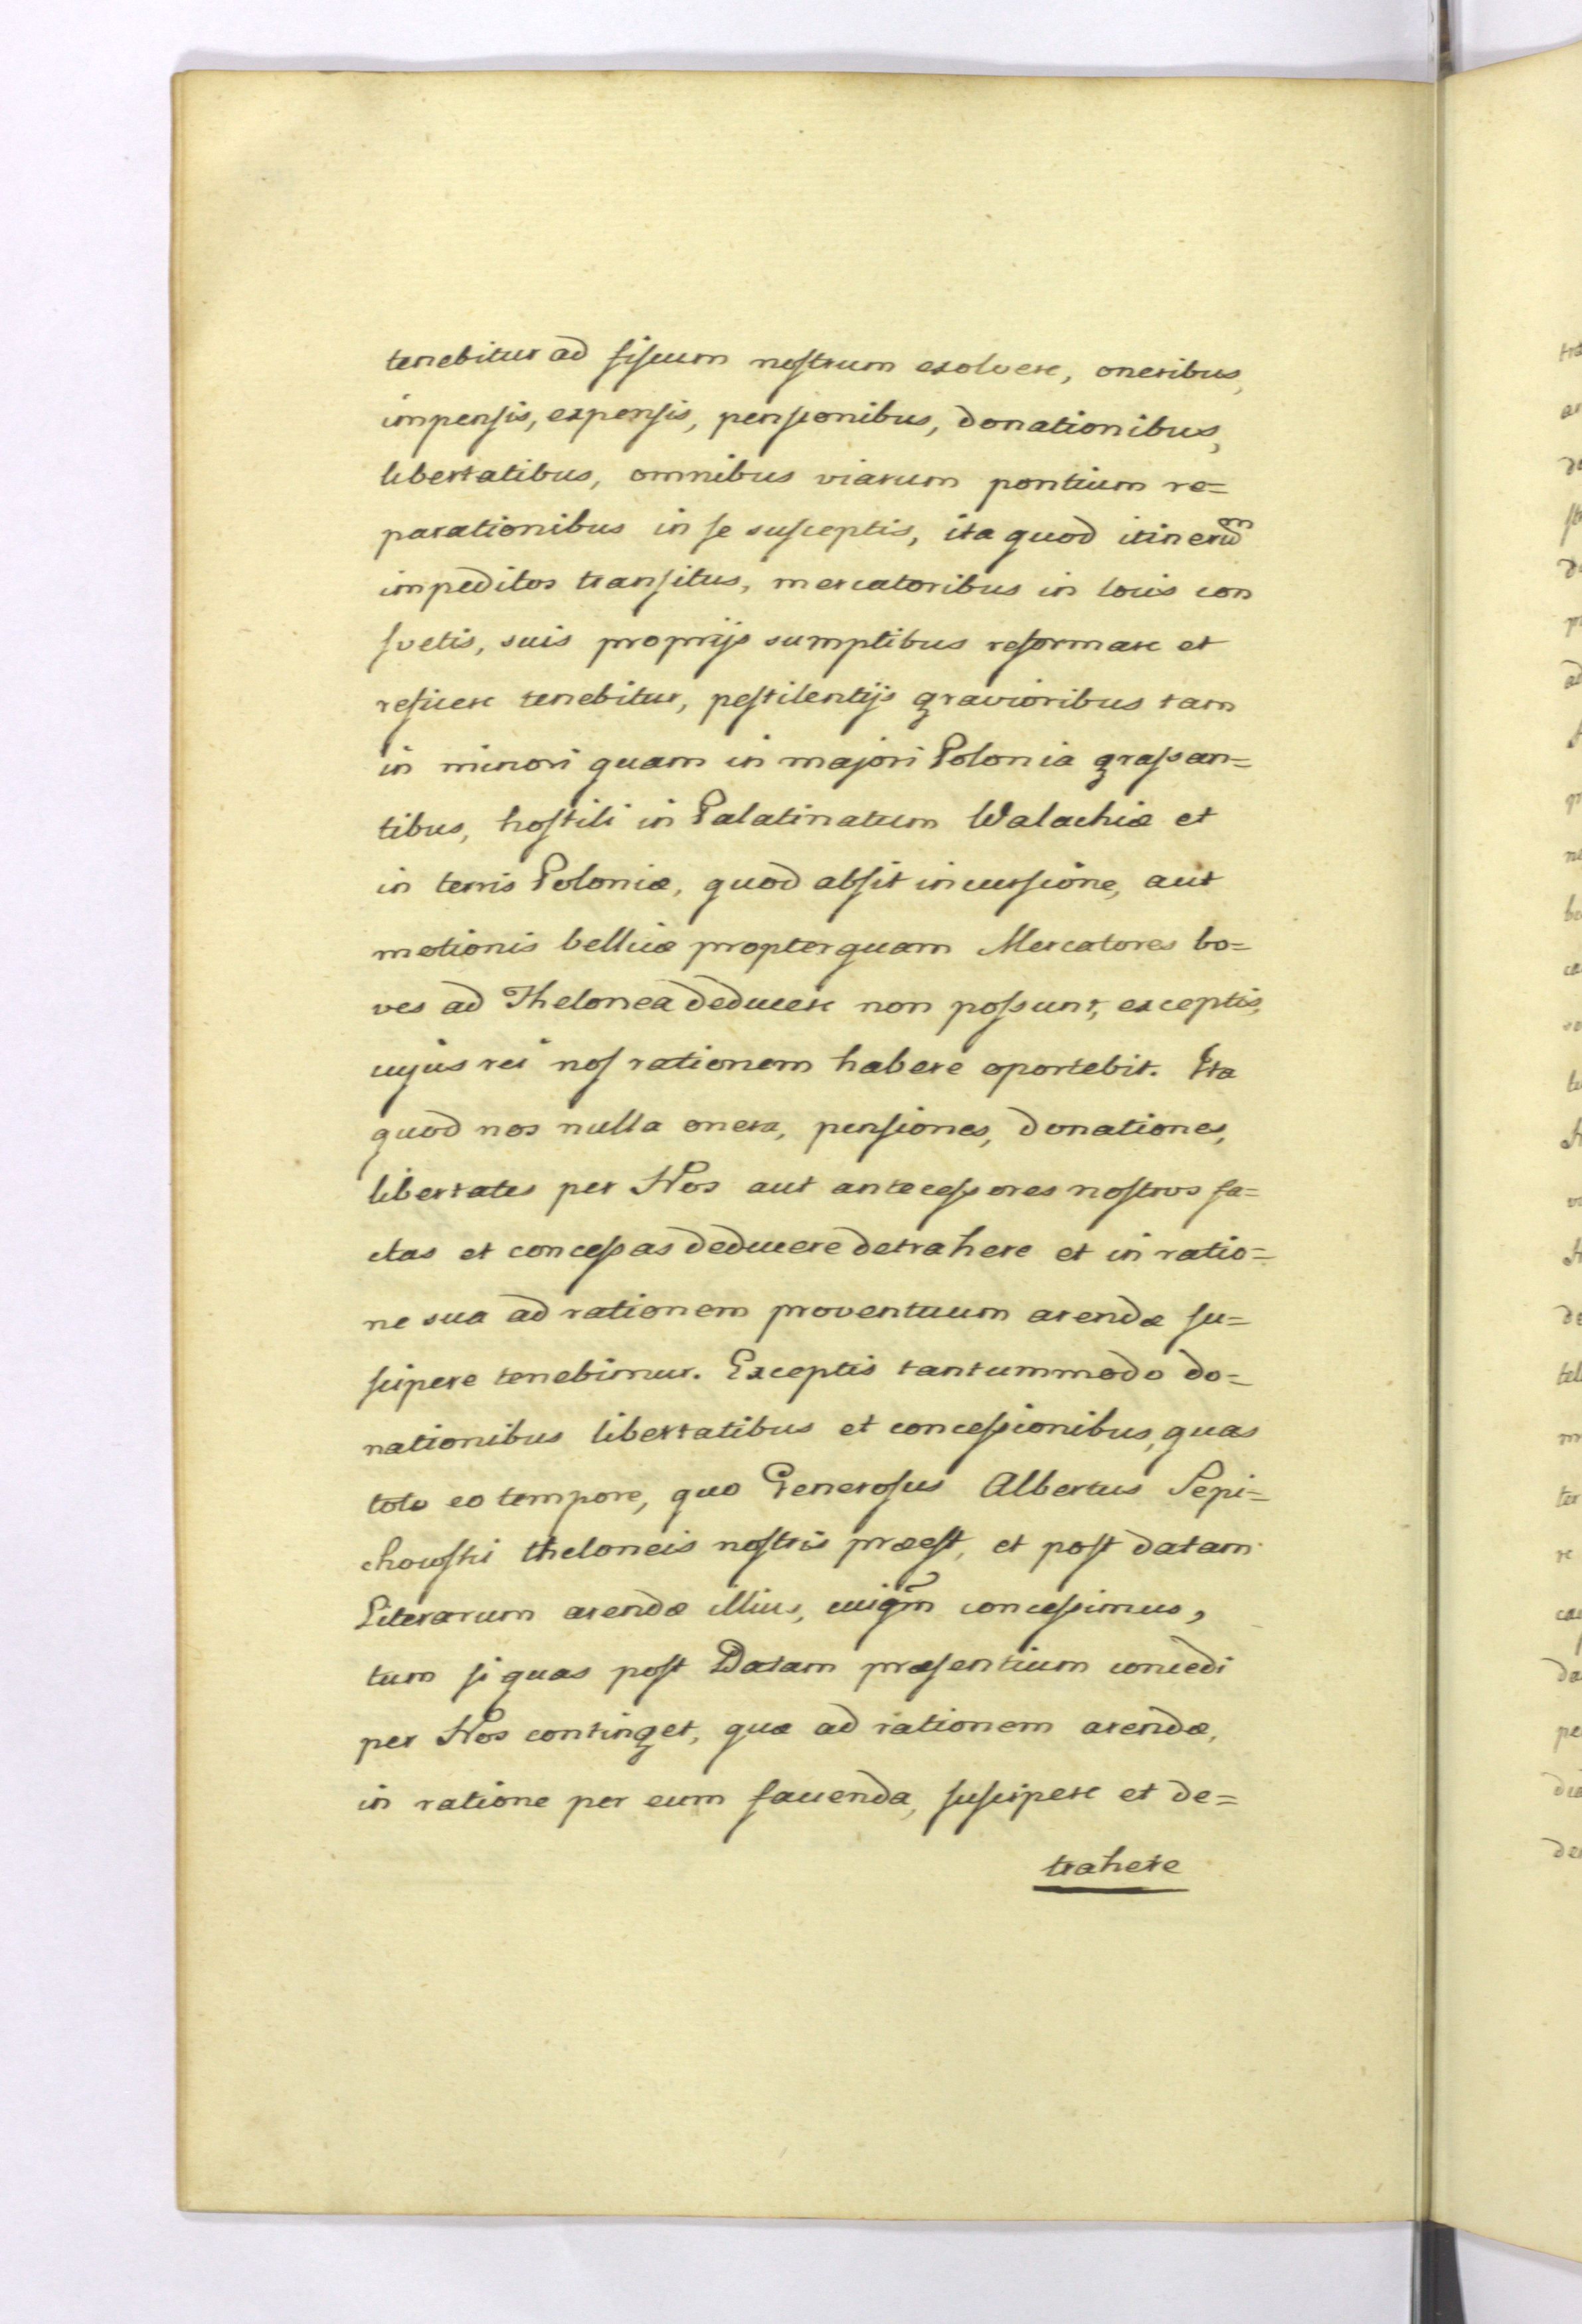 tenebitur ad fiscum nostrum exolvere, oneribus,
impensis, expensis, pensionibus, donationibus,
libertatibus, omnibus viarum pontium re=
parationibus in se susceptis, ita quod itinerum
impeditos transitus, mercatoribus in locis con
svetis, suis proprijs sumptibus reformare et
reficere tenebitur, pestilentijs gravioribus tam
in minori quam in majori Polonia grassan=
tibus, hostili in Palatinatum Walachiæ et
in terris Poloniæ, quod absit incursione, aut
motionis bellicæ propterquam Mercatores bo=
ves ad Thelonea deducere non possunt, exceptis,
cujus rei nos rationem habere oportebit. Ita
quod nos nulla onera, pensiones, donationes,
libertates per Nos aut antecessores nostros fa=
ctas et concessas deducere detrahere et in ratio=
ne sua ad rationem proventuum arendæ su=
scipere tenebimur. Exceptis tantummodo do=
nationibus libertatibus et concessionibus, quas
toto eo tempore, quo Generosus Albertus Sepi=
chowski theloneis nostris præest, et post datam
Literarum arendæ illius, cuiqm̃ concessimus,
tum si quas post Datam præsentium concedi
per Nos continget, quæ ad rationem arendæ,
in ratione per eum facienda, suscipere et de=
trahere